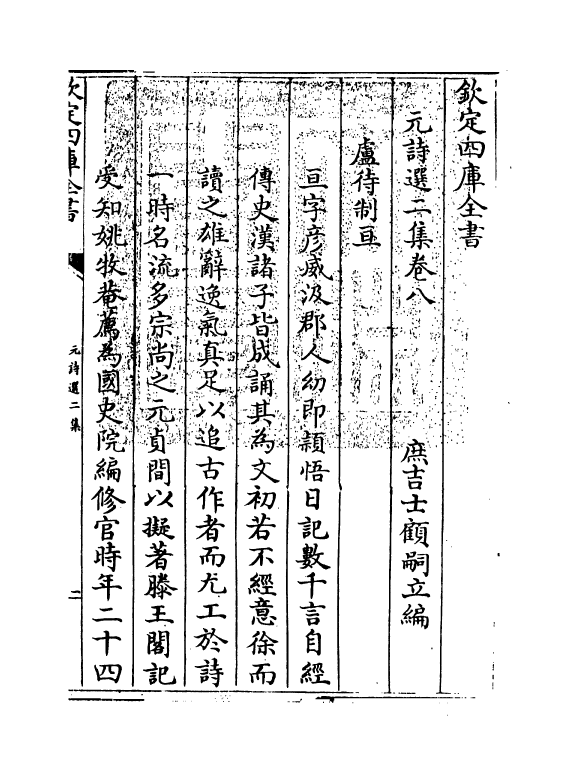 欽定四庫全書
元詩選二集卷八
庶吉士顧嗣立編
盧待制亘
亘字彦威汲郡人幼即穎悟日記數千言自經
傳史漢諸子皆成誦其為文初若不經意徐而
讀之雄辭逸氣真足以追古作者而尤工於詩
一時名流多宗尚之元貞間以擬著滕王閣記
受知姚牧菴薦為國史院編修官時年二十四
欽定四庫全書
元詩選二集
二